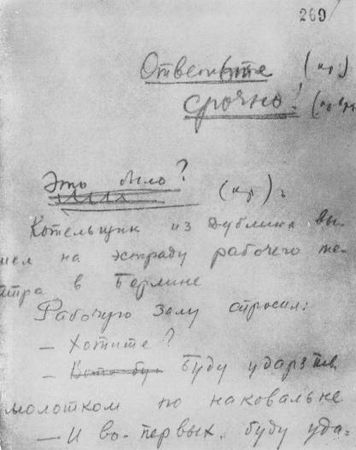 269
Ответьте (кр)
срочно!
Это было? (кр)
Котельщик из Дублина вы-
шел на эстраду рабочего те-
атра в Берлине
Рабочую залу спросил:
— Хотите?
— Буду ударять
молотком по наковальне
— И во-первых. буду уда-